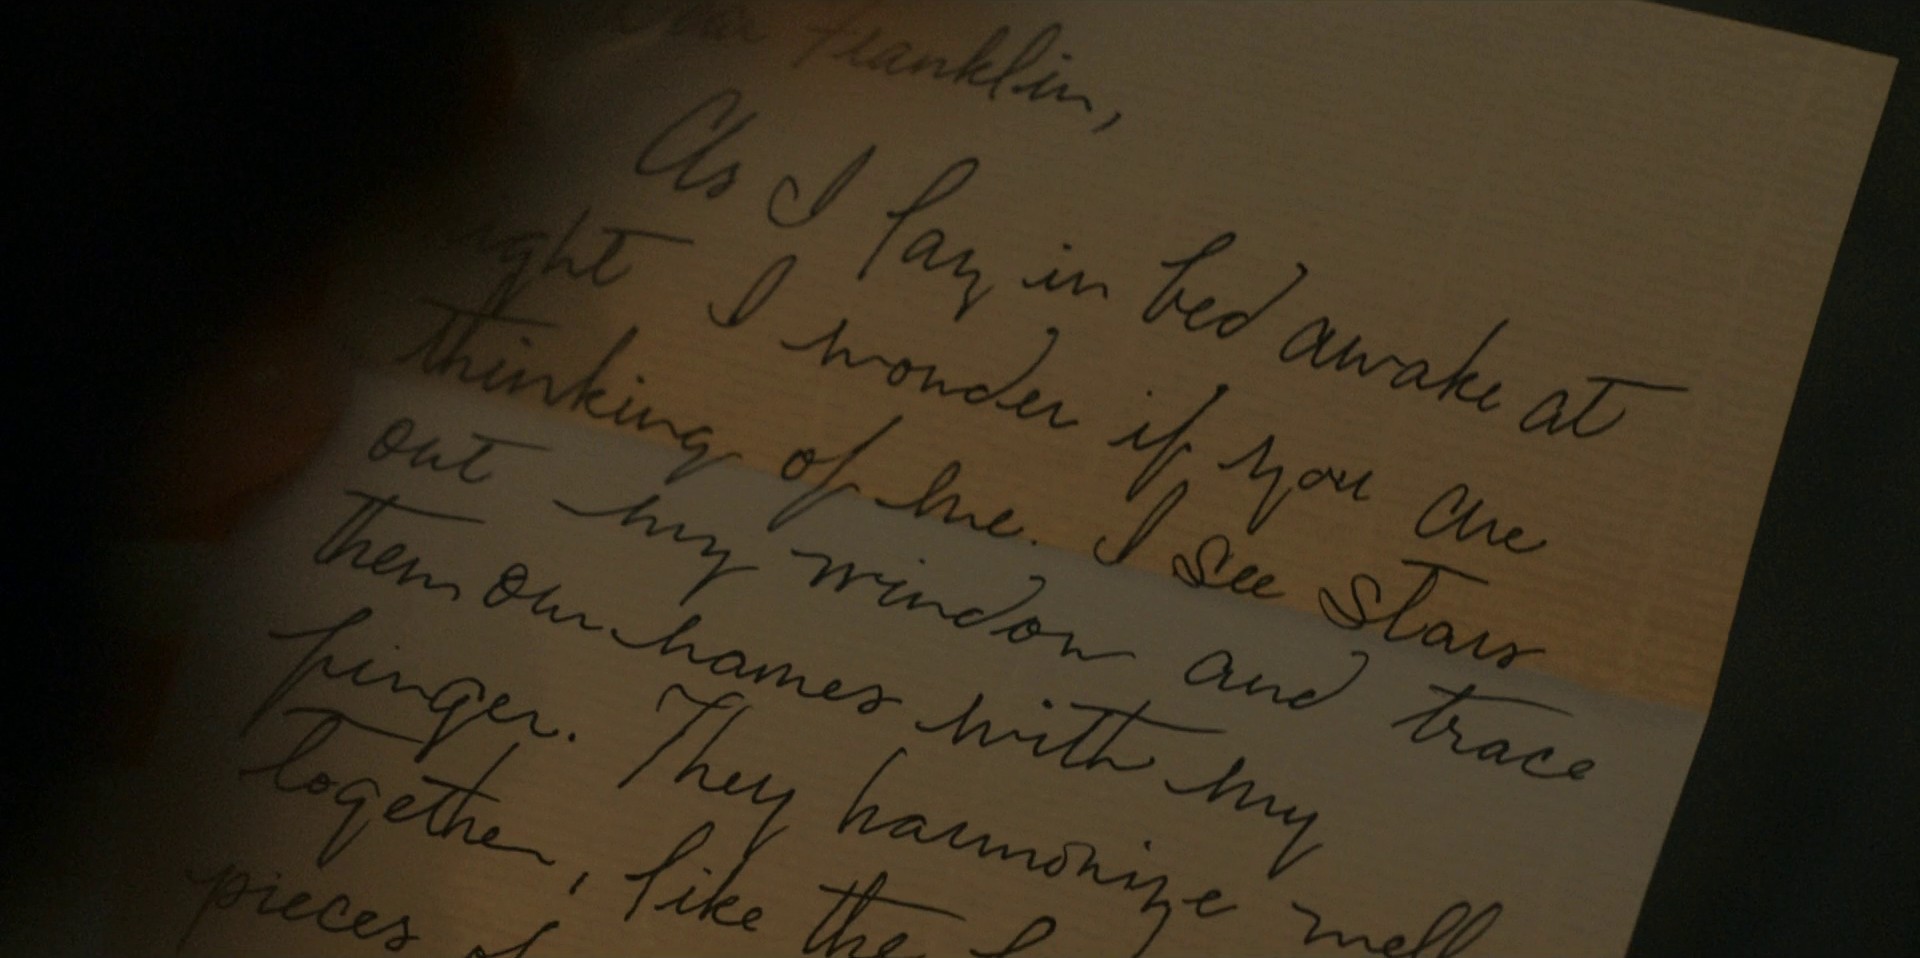 Dear Franklin,
As I lay in bed awake at
night I wonder if you are
thinking of me. I see stars
out my window and trace
them our names with my
finger. They harmonize well
together, like the
pieces of